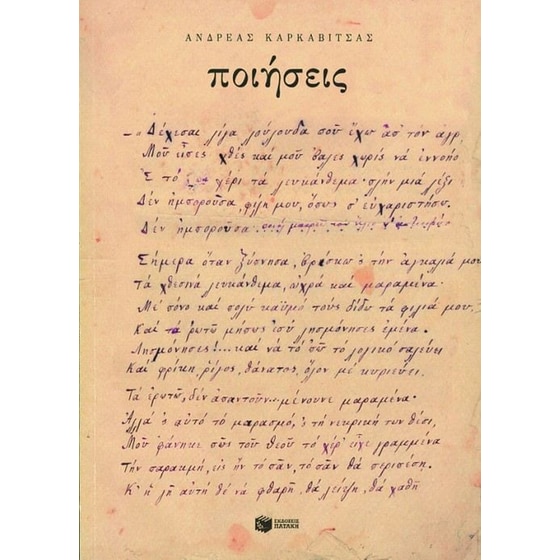 ΑΝΔΡΕΑΣ ΚΑΡΚΑΒΙΤΣΑΣ
ποιήσεις
Δέχεσαι λίγα λούλουδα ποῦ ἔχω ἀπ' τὸν ἀγρ
Μοῦ εἶπες χθὲς καὶ μοῦ βαλες χωρὶς νὰ ἐννοήσω
Σ τὸ χέρι τὰ λευκάνθεμα· πλὴν μιὰ λέξι
Δὲν ἠμποροῦσα, φίλη μου, ὅπως σ' εὐχαριστήσω.
Δὲν ἠμποροῦσα
Σήμερα ὅταν ξύπνησα, βρίσκω 'ς τὴν ἀγκαλιά μου
Τὰ χθεσινὰ λευκάνθεμα, ὠχρὰ καὶ μαραμένα·
Μὲ πόνο καὶ πολὺ καϋμὸ τοὺς δίδω τὰ φιλιά μου,
Καὶ τὰ ρωτῶ μήπως ἐσὺ λησμόνησες ἐμένα.
Λησμόνησες!... καὶ νὰ τὸ πῶ τὸ λογικὸ σαλεύει
Καὶ φρίκη, ρίγος, θάνατος, ὅλον μὲ κυριεύει.
Τὰ ἐρωτῶ, δὲν ἀπαντοῦν... μένουνε μαραμένα·
Ἀλλὰ 'ς αὐτὸ τὸ μαρασμό, 'ς τὴ νεκρική των θέσι,
Μοῦ φάνηκε πῶς τοῦ Θεοῦ τὸ χέρ' εἶχε γραμμένα
Τὴν παρακμή, εἰς ἣν τὸ πᾶν, τὸ πᾶν θὰ περιπέση.
Κ' ἡ γῆ αὐτὴ θὲ νὰ φθαρῆ, θὰ λείψη, θὰ χαθῆ
ΕΚΔΟΣΕΙΣ
ΠΑΤΑΚΗ